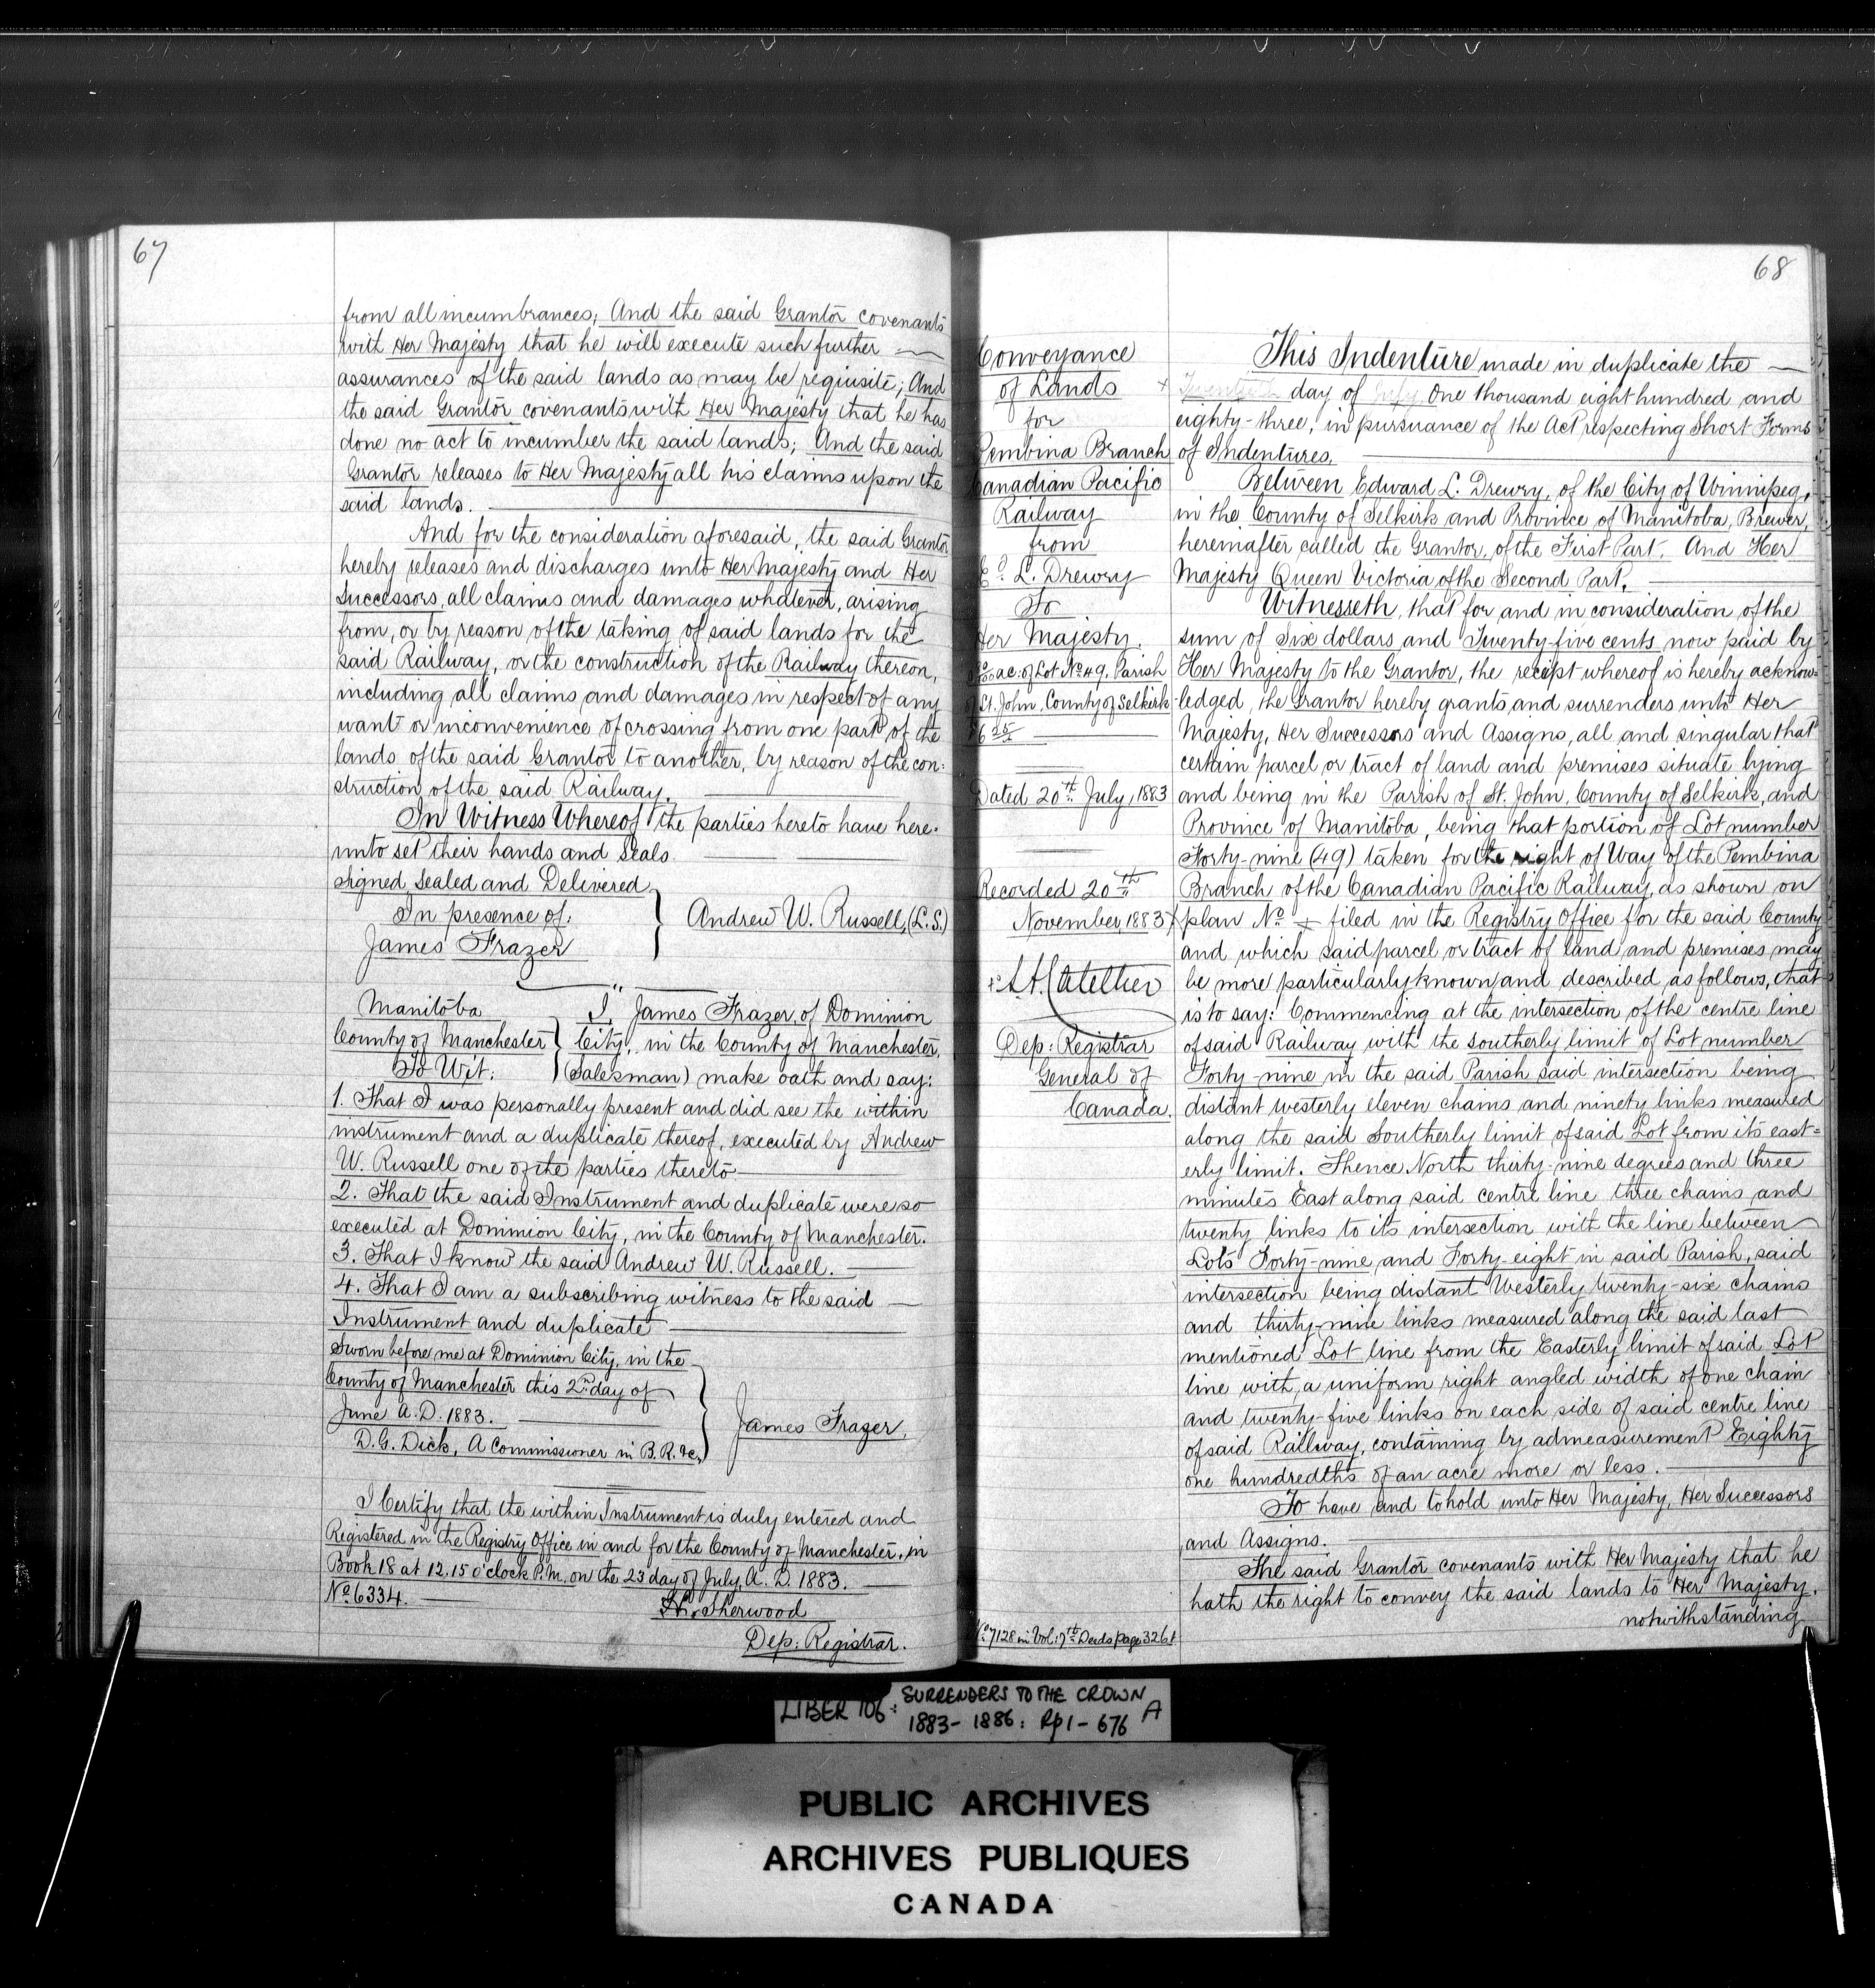 67
from all incumbrances; And the said Grantor covenants
with Her Majesty that he will execute such further
assurances of the said lands as may be requisite; And
the said Grantor covenants with Her Majesty that he has
done no act to incumber the said lands; And the said
Grantor releases to Her Majesty all his claims upon the
said lands.
And for the consideration aforesaid, the said Grantor
hereby releases and discharges unto Her Majesty and Her
Successors, all claims and damages whatever, arising
from, or by reason of the taking of said lands for the
said Railway, or the construction of the Railway thereon,
including all claims and damages in respect of any
want or inconvenience of crossing from one part of the
lands of the said Grantor to another, by reason of the con=
struction of the said Railway.
In Witness Whereof the parties hereto have here-
unto set their hands and seals.
Signed, Sealed and Delivered
In presence of:
James Frazer
Andrew W. Russell, (L.S.)
Manitoba
County of Manchester
To Wit:
I, James Frazer, of Dominion
City, in the County of Manchester,
(Salesman) make oath and say:
1. That I was personally present and did see the within
instrument and a duplicate thereof, executed by Andrew
W. Russell one of the parties thereto
2. That the said Instrument and duplicate were so
executed at Dominion City, in the County of Manchester.
3. That I know the said Andrew W. Russell.
4. That I am a subscribing witness to the said
Instrument and duplicate
Sworn before me at Dominion City, in the
County of Manchester this 2nd day of
June A.D. 1883.
D.G. Dick, A Commissioner in B.R. &c,
James Frazer,
I Certify that the within Instrument is duly entered and
Registered in the Registry Office in and for the County of Manchester, in
Book 18 at 12.15 o'clock P.M. on the 23 day of July, A.D. 1883.
No 6334.
Sherwood
Dep: Registrar.
68
Conveyance
of Lands
for
Pembina Branch
Canadian Pacific
Railway
from
Ed L. Drewry
To
Her Majesty.
80/100 ac: of Lot No 49, Parish
of St. John, County of Selkirk
$6 25/
Dated 20th July, 1883
Recorded 20th
November, 1883
Dep: Registrar
General of
Canada.
No 7128 in Vol: 7th Deeds page 326
This Indenture made in duplicate the
Twentieth day of July One thousand eight hundred and
eighty-three, in pursuance of the Act respecting Short Forms
of Indentures,
Between Edward L. Drewry, of the City of Winnipeg,
in the County of Selkirk and Province of Manitoba, Brewer,
hereinafter called the Grantor, of the First Part, And Her
Majesty Queen Victoria of the Second Part,
Witnesseth, that for and in consideration of the
sum of Six dollars and Twenty-five cents now paid by
Her Majesty to the Grantor, the receipt whereof is hereby acknow=
ledged, the Grantor hereby grants and surrenders unto Her
Majesty, Her Successors and Assigns, all and singular that
certain parcel or tract of land and premises situate lying
and being in the Parish of St. John, County of Selkirk, and
Province of Manitoba, being that portion of Lot number
Forty-nine (49) taken for the right of Way of the Pembina
Branch of the Canadian Pacific Railway, as shown on
plan No + filed in the Registry Office for the said County
and which said parcel or tract of land and premises may
be more particularly known and described as follows, that
is to say: Commencing at the intersection of the centre line
of said Railway with the southerly limit of Lot number
Forty-nine in the said Parish said intersection being
distant westerly eleven chains and ninety links measured
along the said Southerly limit of said Lot from its east=
erly limit. Thence North thirty-nine degrees and three
minutes East along said centre line three chains and
twenty links to its intersection with the line between
Lots Forty-nine and Forty-eight in said Parish, said
intersection being distant Westerly twenty-six chains
and thirty-nine links measured along the said last
mentioned Lot line from the Easterly limit of said Lot
line with a uniform right angled width of one chain
and twenty-five links on each side of said centre line
of said Railway, containing by admeasurement Eighty
one hundredths of an acre more or less.
To have and to hold unto Her Majesty, Her Successors
and Assigns.
The said Grantor covenants with Her Majesty that he
hath the right to convey the said lands to Her Majesty,
notwithstanding
LIBER 106: SURRENDERS TO THE CROWN A
1883-1886: Rp 1-676
PUBLIC ARCHIVES
ARCHIVES PUBLIQUES
CANADA